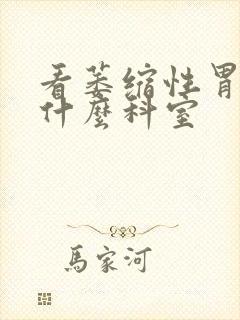 看萎缩性胃
什麼科室
馬家河